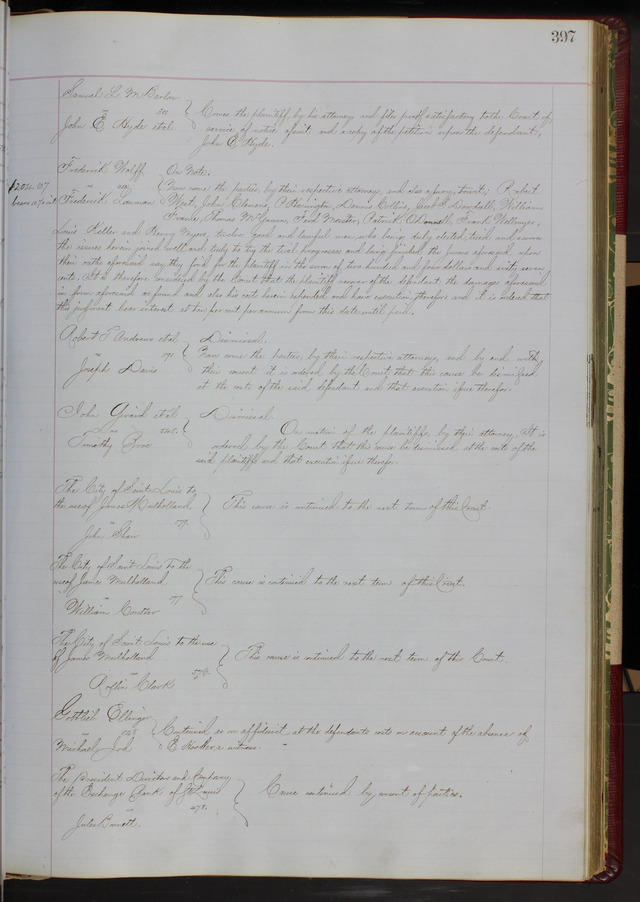 397
Samuel L. M. Barlow
vs
John E. Hyde et al.
Comes the plaintiff by his attorney and files proof satisfactory to the Court of
service of notice of suit and a copy of the petition upon the defendant,
John E. Hyde.
Frederick Wolff
vs
Frederick Lowman
$204.07
bears 10 pr ct int
On Note.
Now come the parties, by their respective attorneys, and also a jury, to wit; Robert
Wyat, John Clemens, P. Harrington, Dennis Collins, Jacob S. William
Thomas McGannon, Ferd Meister, Patrick O'Donnell, Frank
Louis Keller and Henry Meyers, twelve good and lawful men, who being duly elected, tried and sworn
the issues herein joined well and truly to try the trial progresses and being finished, the jurors aforesaid, upon
their oaths aforesaid say, they find for the plaintiff in the sum of two hundred and four dollars and seven
cents. It is therefore considered by the Court that the plaintiff recover of the defendant the damages aforesaid
in form aforesaid so found and also his costs herein expended and have execution therefor and it is ordered that
this judgment bear interest at ten per cent per annum from this date until paid.
Robert T. Andrews et al
vs 171
Joseph Davis
Dismissal.
Now come the parties, by their respective attorneys, and by and with
their consent it is ordered by the Court, that this cause be dismissed
at the costs of the said defendant and that execution issue therefor.
John et al
vs
Timothy
Dismissal.
On motion of the plaintiffs, by their attorney, it is
ordered by the Court that this cause be dismissed at the costs of the
said plaintiffs and that execution issue therefor.
The City of Saint Louis to
the use of James Mulholland
vs
John Shaw
This cause is continued to the next term of this Court.
The City of Saint Louis to the
use of James Mulholland
vs
William Coulter
This cause is continued to the next term of this Court.
The City of Saint Louis to the use
of James Mulholland
vs
Clark
This cause is continued to the next term of this Court.
Gottlieb Ellinger
vs
Michael
Continued as on affidavit at the defendants costs on account of the absence of
a witness.
The President Directors and Company
of the Exchange Bank of St Louis
vs
Jules
Cause continued by consent of parties.